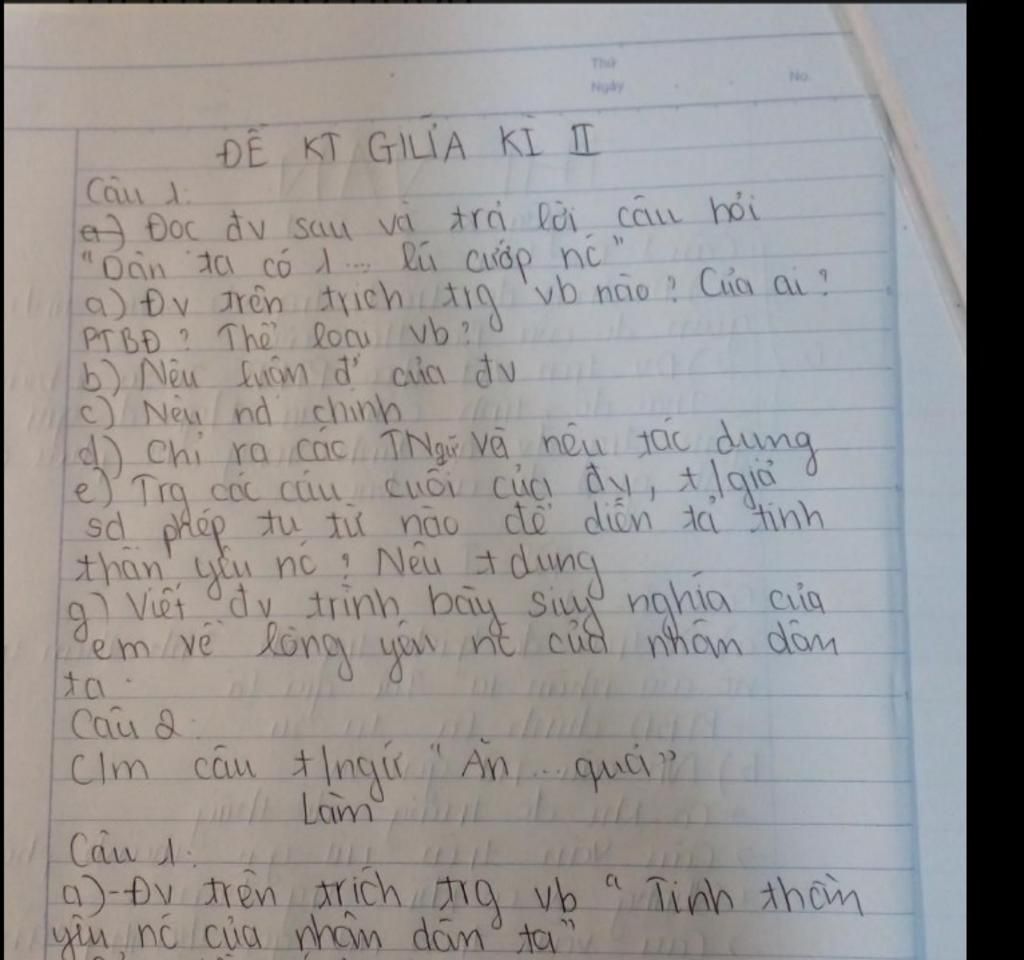 Thứ
Ngày
No.
ĐỀ KT GIỮA KÌ II
Câu 1:
a) Đọc đv sau và trả lời câu hỏi
"Dân ta có 1... lũ cướp nc"
a) Đv trên trích trg vb nào? Của ai?
PTBĐ? Thể loại vb?
b) Nêu luận đ' của đv
c) Nêu nd chính
d) Chỉ ra các TNgữ và nêu tác dụng
e) Trg các câu cuối của đv, t/giả
sd phép tu từ nào để diễn tả tinh
thần yêu nc? Nêu t dụng
g) Viết đv trình bày suy nghĩa của
em về lòng yêu nc của nhân dân
ta.
Câu 2:
C/m câu t/ngữ "Ăn ... quả"
Làm
Câu 1:
a)-Đv trên trích trg vb "Tinh thần
yêu nc của nhân dân ta"